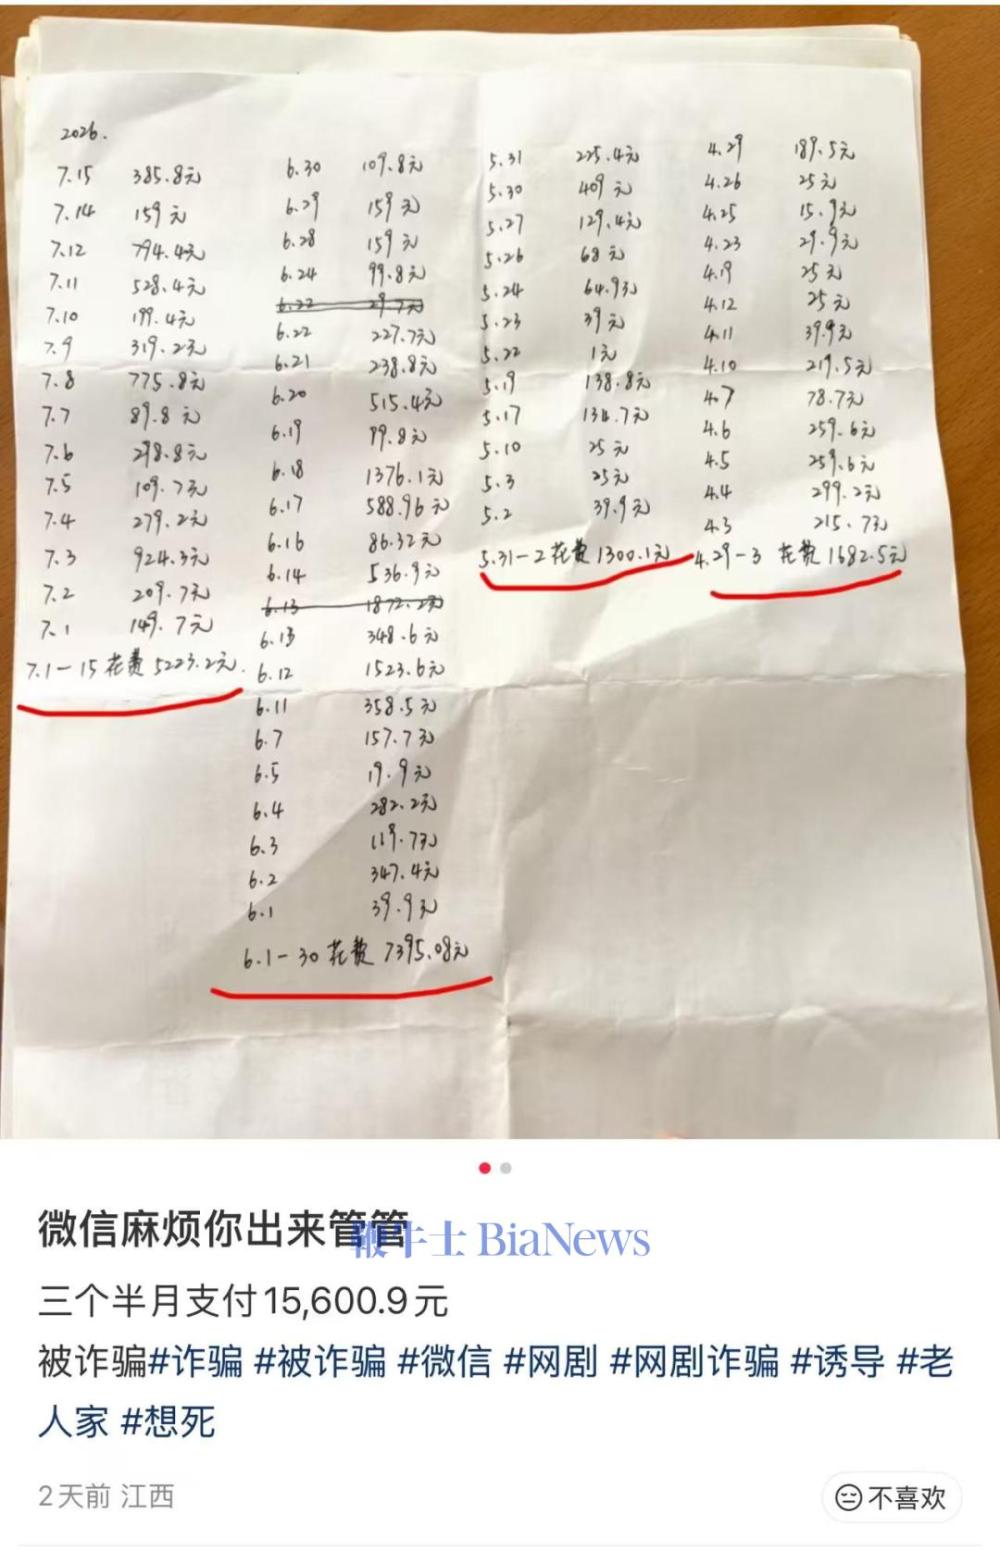 2026.
7.15 385.8元
7.14 159元
7.12 794.4元
7.11 528.4元
7.10 199.4元
7.9 319.2元
7.8 775.8元
7.7 89.8元
7.6 298.8元
7.5 109.7元
7.4 279.2元
7.3 924.3元
7.2 209.7元
7.1 149.7元
7.1-15花费5223.2元.
6.30 109.8元
6.29 159元
6.28 159元
6.24 99.8元
6.22 29.7元
6.22 227.7元
6.21 238.8元
6.20 515.4元
6.19 99.8元
6.18 1376.1元
6.17 588.96元
6.16 86.32元
6.14 536.9元
6.13 1872.2元
6.13 348.6元
6.12 1523.6元
6.11 358.5元
6.7 157.7元
6.5 19.9元
6.4 282.2元
6.3 119.7元
6.2 347.4元
6.1 39.9元
6.1-30花费7395.08元
5.31 225.4元
5.30 409元
5.27 129.4元
5.26 68元
5.24 64.9元
5.23 39元
5.22 1元
5.19 138.8元
5.17 134.7元
5.10 25元
5.3 25元
5.2 39.9元
5.31-2花费1300.1元
4.29 189.5元
4.26 25元
4.25 15.9元
4.23 29.9元
4.19 25元
4.12 25元
4.11 39.9元
4.10 219.5元
4.7 78.7元
4.6 259.6元
4.5 259.6元
4.4 299.2元
4.3 215.7元
4.29-3 花费1682.5元
微信麻烦你出来管管
鞭牛士 BiaNews
三个半月支付15,600.9元
被诈骗#诈骗 #被诈骗 #微信 #网剧 #网剧诈骗 #诱导 #老
人家 #想死
2天前 江西
不喜欢